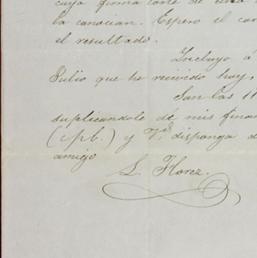 cuya firma
la conocian. Espero el
el resultado.
Incluyo á
Julio que he recivido hoy,
San las 11
duplicandole de mis
(c.p.b.) y Vd. disponga d
amigo
L. Florez